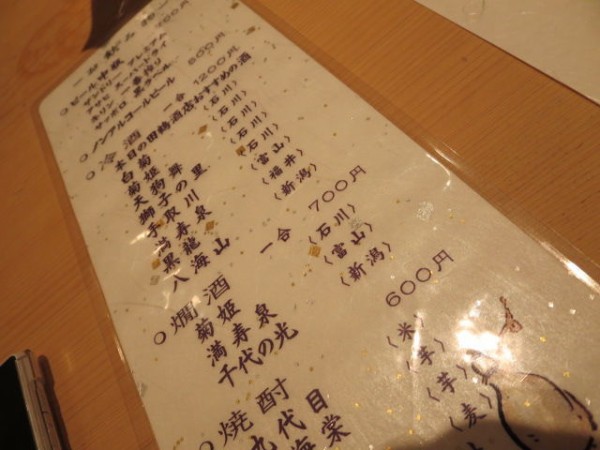 一お飲み物一
○ビール中瓶 700円
サントリー プレミアム
アサヒ スーパードライ
キリン 一番搾り
サッポロ 黒ラベル
○ノンアルコールビール 500円
○冷酒 一合 1200円
本日の田鶴酒店おすすめの酒
白菊 〈石川〉
菊姫 〈石川〉
天狗舞 〈石川〉
獅子の里 〈石川〉
手取川 〈石川〉
満寿泉 〈富山〉
黒龍 〈福井〉
八海山 〈新潟〉
○燗酒 一合 700円
菊姫 〈石川〉
満寿泉 〈富山〉
千代の光 〈新潟〉
○焼酎 600円
九代目 〈米〉
海棠 〈芋〉
〈芋〉
〈麦〉